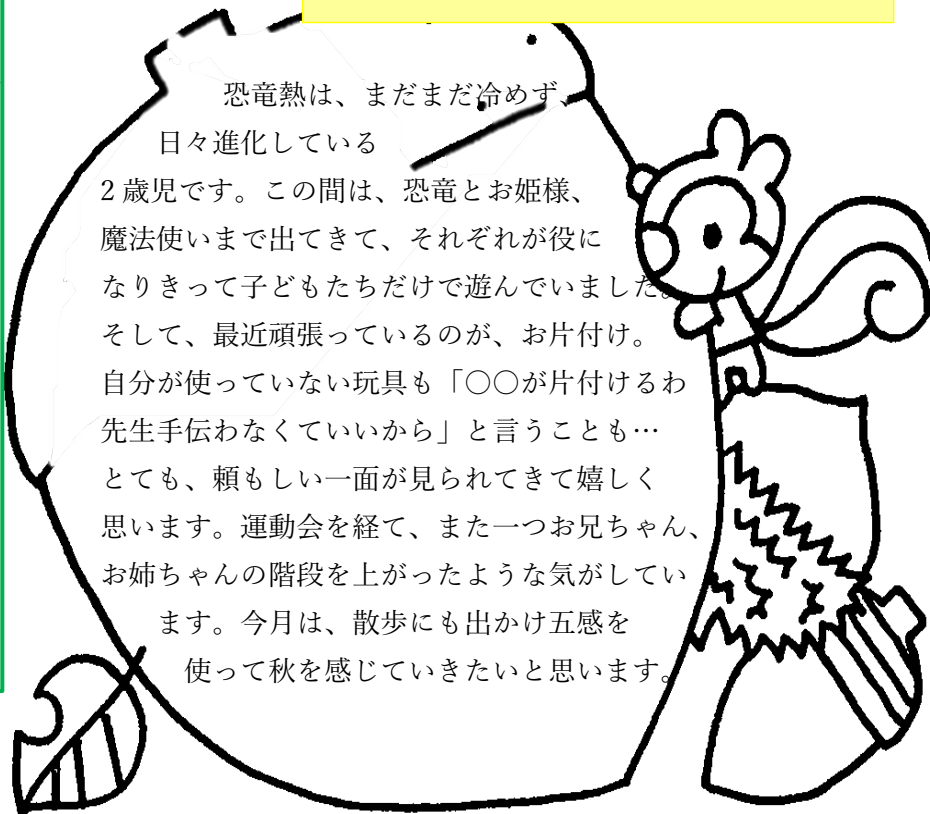 恐竜熱は、まだまだ冷めず、
日々進化している
2歳児です。この間は、恐竜とお姫様、
魔法使いまで出てきて、それぞれが役に
なりきって子どもたちだけで遊んでいました。
そして、最近頑張っているのが、お片付け。
自分が使っていない玩具も「〇〇が片付けるわ
先生手伝わなくていいから」と言うことも…
とても、頼もしい一面が見られてきて嬉しく
思います。運動会を経て、また一つお兄ちゃん、
お姉ちゃんの階段を上がったような気がしてい
ます。今月は、散歩にも出かけ五感を
使って秋を感じていきたいと思います。